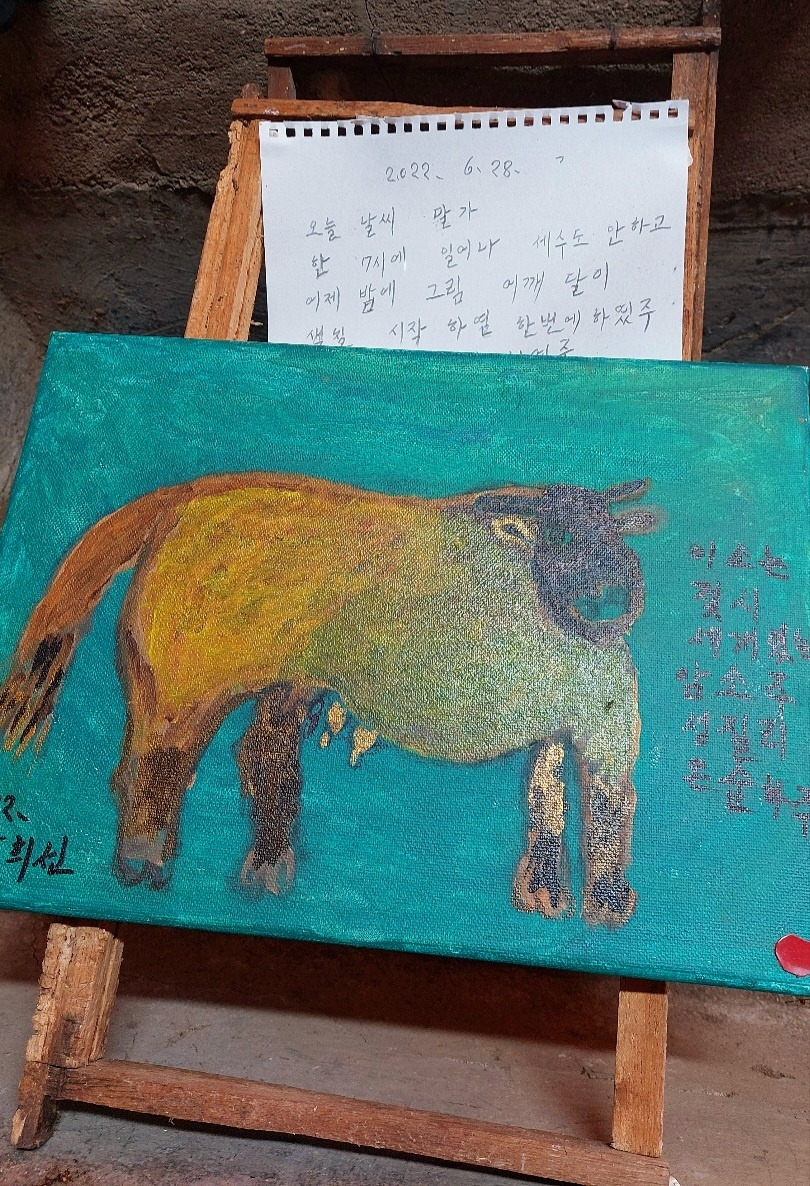 2022. 6. 28.
오늘 날씨 말가
한 7시에 일어나 세수도 안하고
어제 밤에 그림 어깨 달이
시작 하열 한번에 하였주
이소는
젖시
세게
암소주
성질리
온순하주
희선